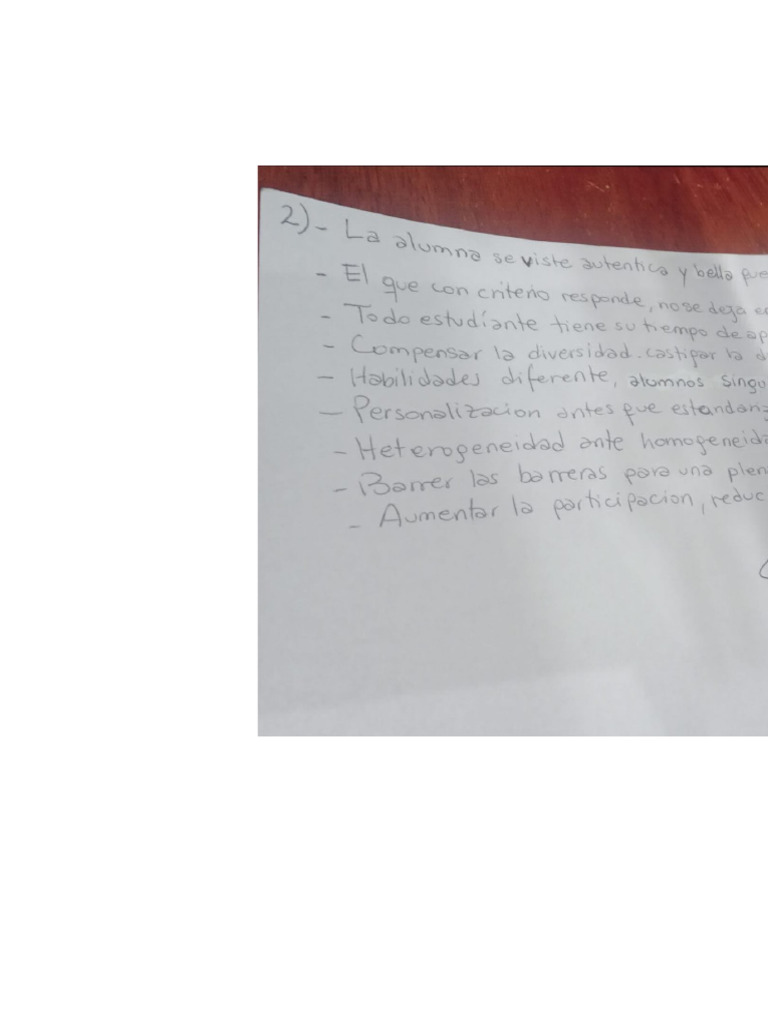 2) - La alumna se viste autentica y bella
- El que con criterio responde, no se deja
- Todo estudiante tiene su tiempo de
- Compensar la diversidad. castigar la
- Habilidades diferente, alumnos
- Personalizacion antes que
- Heterogeneidad ante
- Barrer las barreras para una
- Aumentar la participacion,